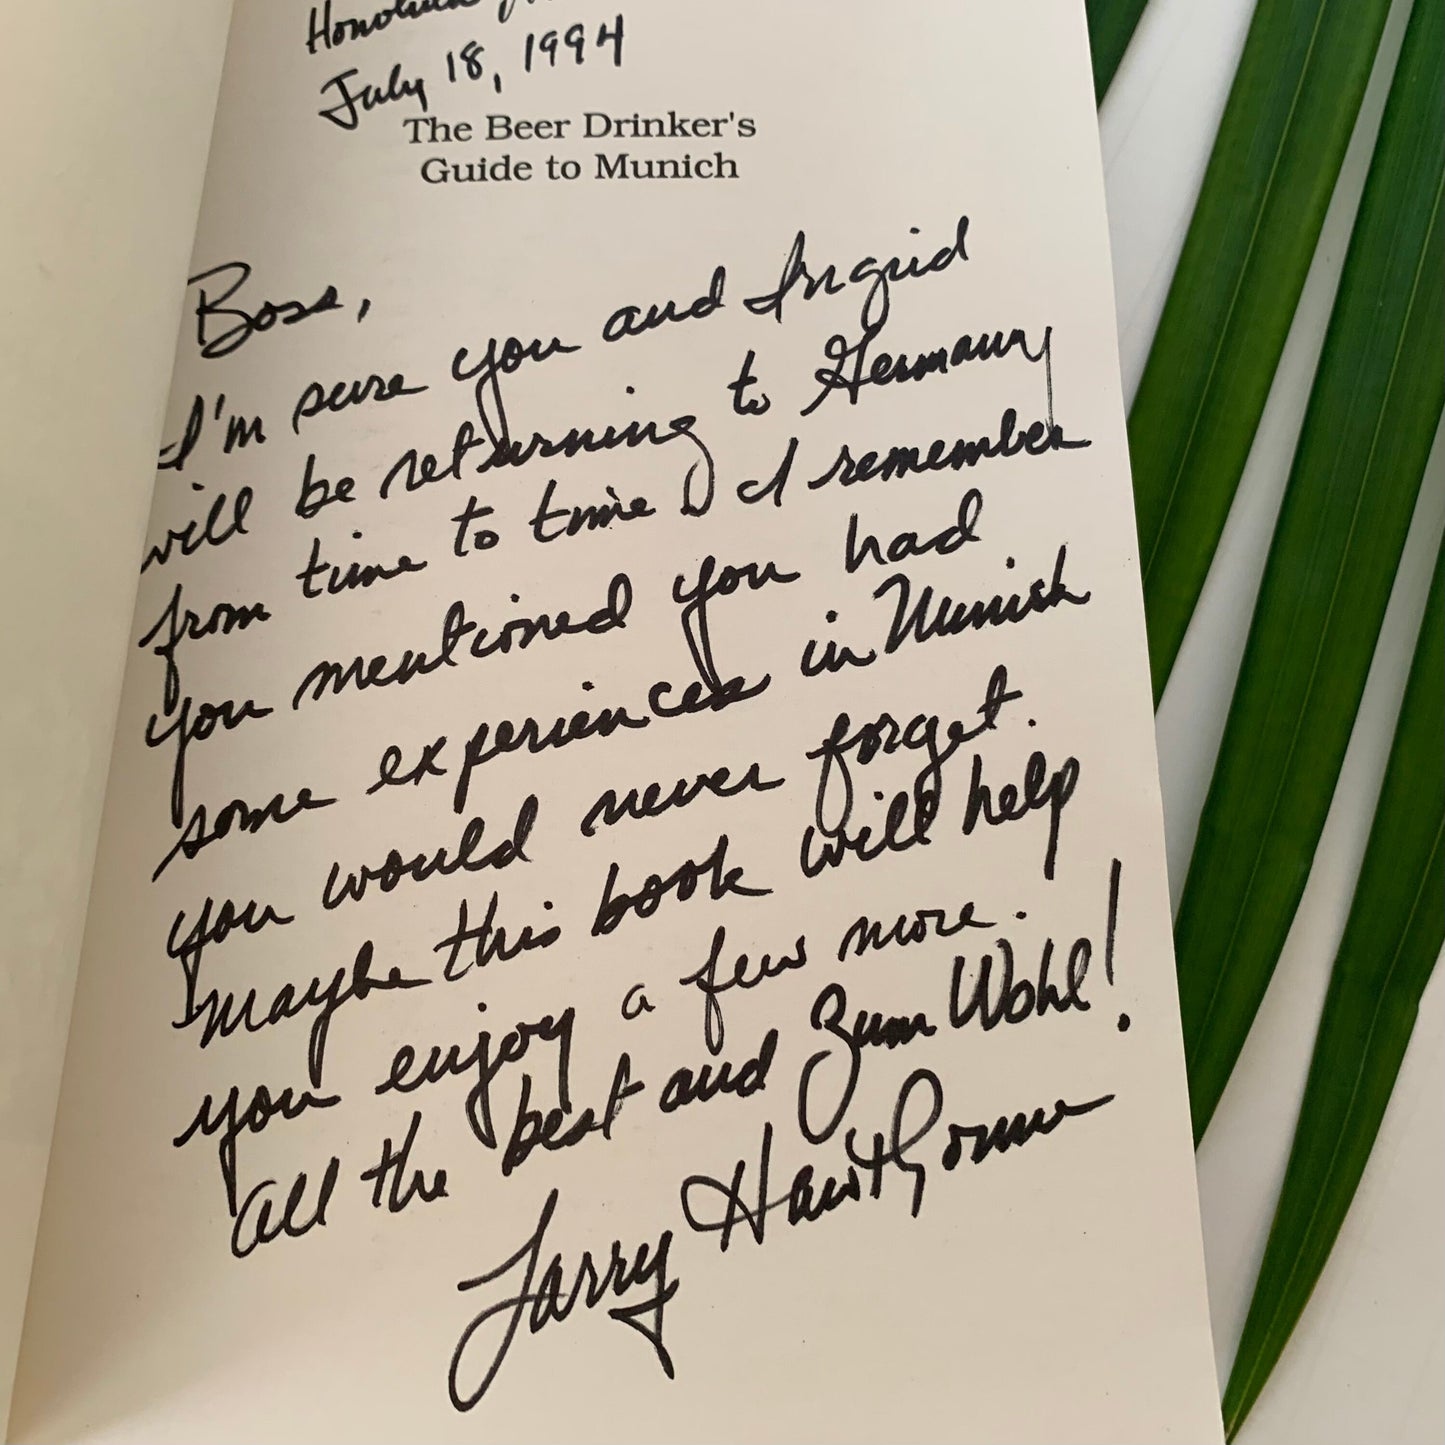 Honolulu
July 18, 1994
The Beer Drinker's
Guide to Munich
Boss,
I'm sure you and Ingrid
will be returning to Germany
from time to time. I remember
you mentioned you had
some experiences in Munich
you would never forget.
Maybe this book will help
you enjoy a few more.
All the best and Zum Wohl!
Larry Hawthorne